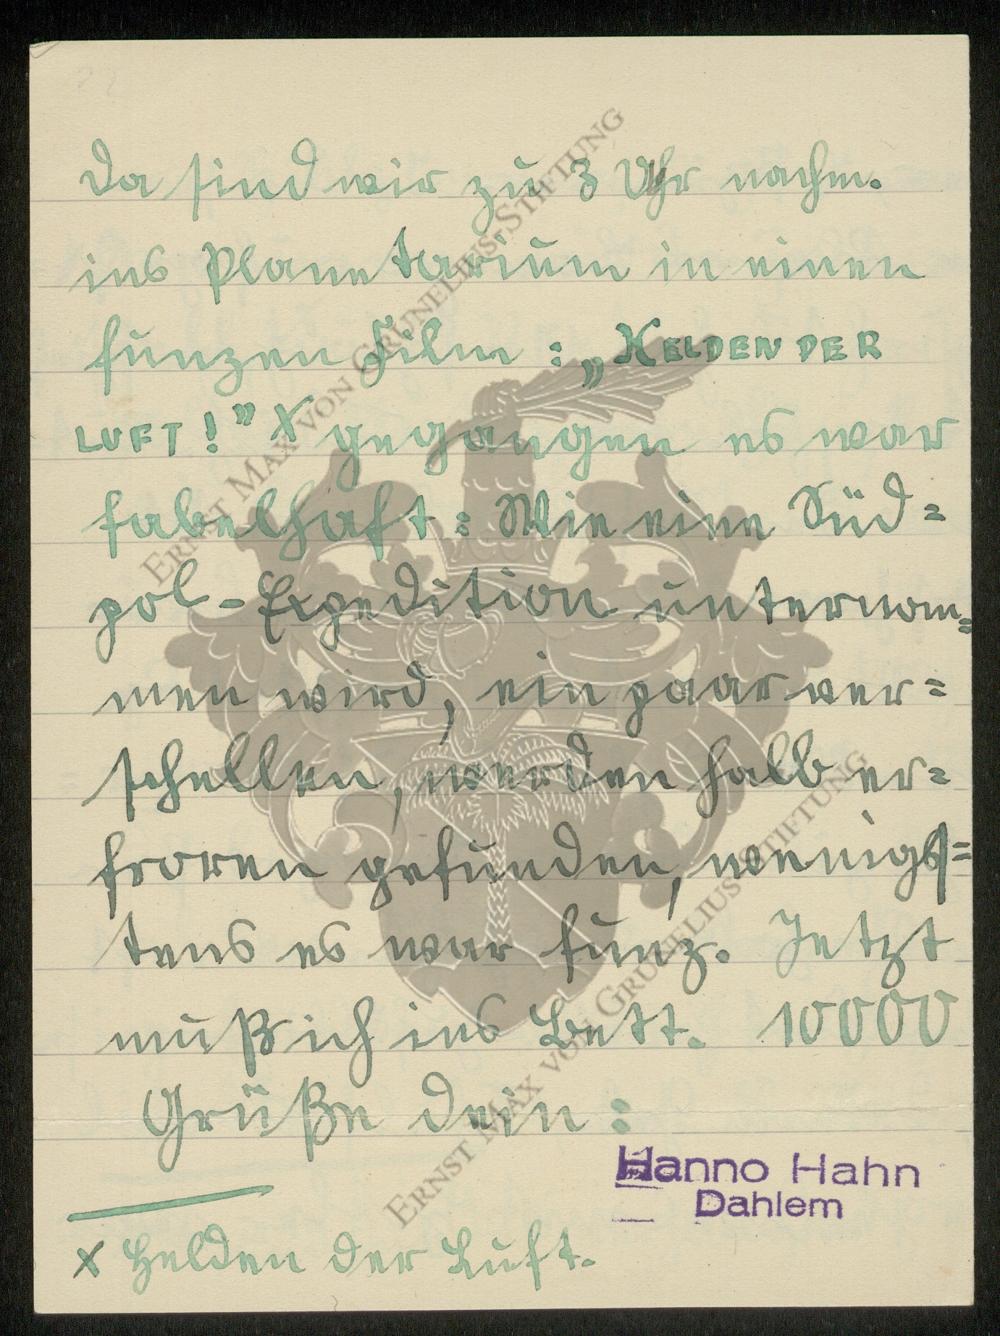 da sind wir zu 3 Uhr nachm.
ins Planetarium in einen
funzen Film: „HELDEN DER
LUFT!" X gegangen es war
fabelhaft: Wie eine Süd=
pol-Expedition unternom=
men wird, ein paar ver=
schellen, werden halb er=
froren gefunden, wenigs=
tens es war funz. Jetzt
muß ich ins Bett. 10000
Grüße dein:
Hanno Hahn
Dahlem
X Helden der Luft.
ERNST MAX VON GRUNELIUS-STIFTUNG
ERNST MAX VON GRUNELIUS-STIFTUNG